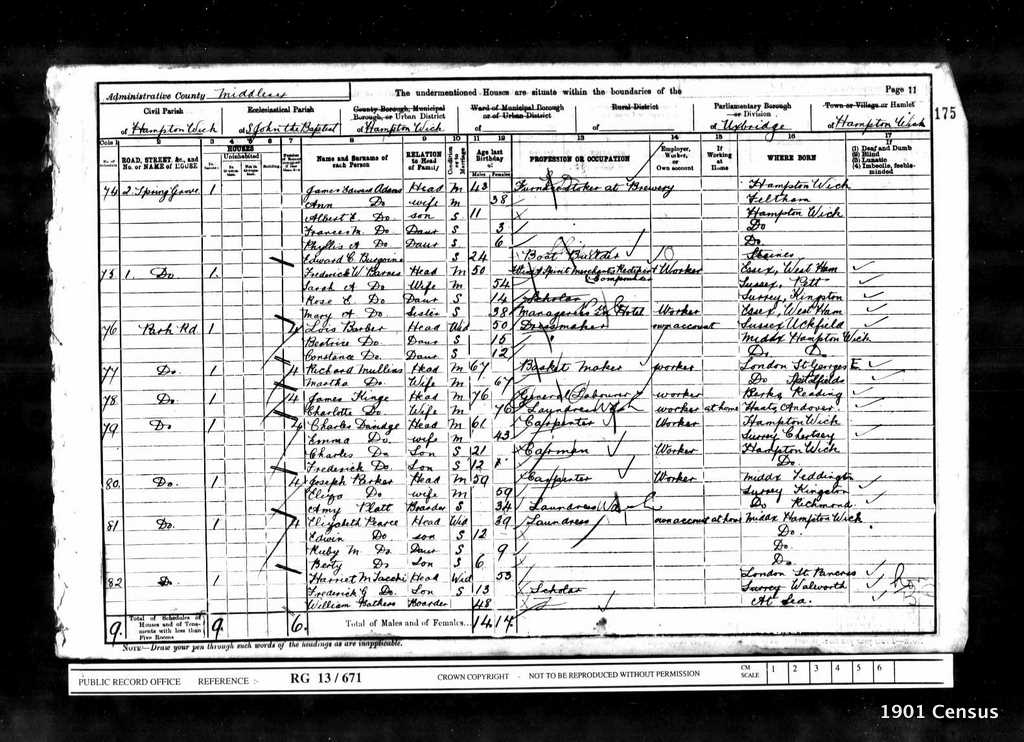 Administrative County Middlesex The undermentioned Houses are situate within the boundaries of the Page 11
Civil Parish Ecclesiastical Parish County Borough, Municipal Borough, or Urban District Ward of Municipal Borough or of Urban District Rural District Parliamentary Borough or Division Town or Village or Hamlet
of Hampton Wich of St John the Baptist of Hampton Wich. of of of Uxbridge of Hampton Wick 175
Cols 1 2 3 4 5 6 7 8 9 10 11 12 13 14 15 16 17
ROAD, STREET, &c., and No. or NAME of HOUSE HOUSES Uninhabited Building Name and Surname of each Person RELATION to Head of Family Age last Birthday of Males Females PROFESSION OR OCCUPATION Employer, Worker, or Own account If Working at Home WHERE BORN (1) Deaf and Dumb (2) Blind (3) Lunatic (4) Imbecile, feeble-minded
74 2 Spring Grove 1 James Edward Adams Head M 43 Stoker at Brewery Hampton Wich
Ann Do wife M 38 Feltham
Albert E. Do son S 11 Hampton Wich
Frances M. Do Daur S 3 Do
Phyllis A Do Daur S 6 Do
Edward C S 24 Boat Staines
75 1 Do. 1 Frederick W Barnes Head M 50 Worker Essex, West Ham
Sarah A Do Wife M 54 Sussex, Pett
Rose E. Do Daur S 14 Scholar Surrey, Kingston
Mary A Do Sister S 38 Manageress Hotel Worker Essex, West Ham
76 Park Rd 1 4 Lois Barber Head Wid 50 Dressmaker own account Sussex Uckfield
Beatrice Do Daur S 15 Middx Hampton Wich
Constance Do. Daur S 12 Do. Do
77 Do. 1 4 Richard Mullins Head M 67 Basket Maker worker London St Georges E
Martha Do. Wife M 67 Do
78 Do. 1 4 James Kinge Head M 76 General Labourer worker Berks, Reading
Charlotte Do Wife M 76 Laundress Wash worker at home Hants, Andover.
79 Do 1 4 Charles Head M 61 Carpenter Worker Hampton Wich
Emma Do wife M 43 Surrey Chertsey
Charles Do Son S 21 Carman Worker Hampton Wich
Frederick Do. Son S 12 Do.
80. Do. 1 4 Joseph Parker Head M 59 Carpenter Worker Middx Teddington
Eliza Do wife M 59 Surrey Kingston
Amy Platt Boarder S 34 Laundress Do Richmond
81 Do. 1 4 Elizabeth Pearce Head Wid 39 Laundress own account at home Middx Hampton Wich
Edwin Do. son S 12 Do.
Ruby M. Do Daur S 9 Do.
Berty Do Son S 6 Do
82 Do 1 Harriet M Head Wid 53 London St. Pancras
Frederick G Do. Son S 13 Scholar Surrey Walworth
William Boarder 48 At Sea.
9. Total of Schedules of Houses and of Tenements with less than Five Rooms 9. 6. Total of Males and of Females... 14 17
NOTE—Draw your pen through such words of the headings as are inapplicable.
PUBLIC RECORD OFFICE REFERENCE :- RG 13/671 CROWN COPYRIGHT - NOT TO BE REPRODUCED WITHOUT PERMISSION CM SCALE 1 2 3 4 5 6
1901 Census